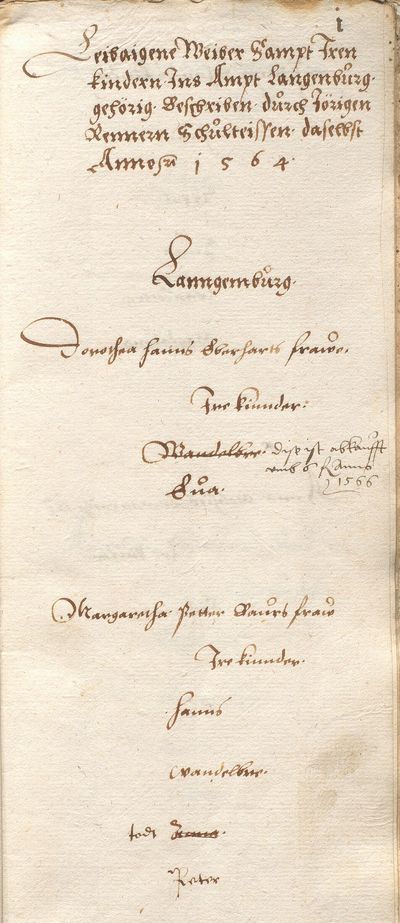 1
Leibaigene Weiber Sampt Iren
kindern Ins Ampt Langenburg
gehörig. Beschriben durch Jörigen
Rennern Schulteissen daselbst
Anno 1564.
Lanngenburg.
Dorothea Hanns Eberharts frawe.
Ire kinnder.
Wandelbre. disz ist abkaufft
umb 6 f Anno
1566
Eua.
Margaretha Petter Baurs fraw
Ire kinnder.
Hanns
Wandelbre.
todt Anna.
Peter